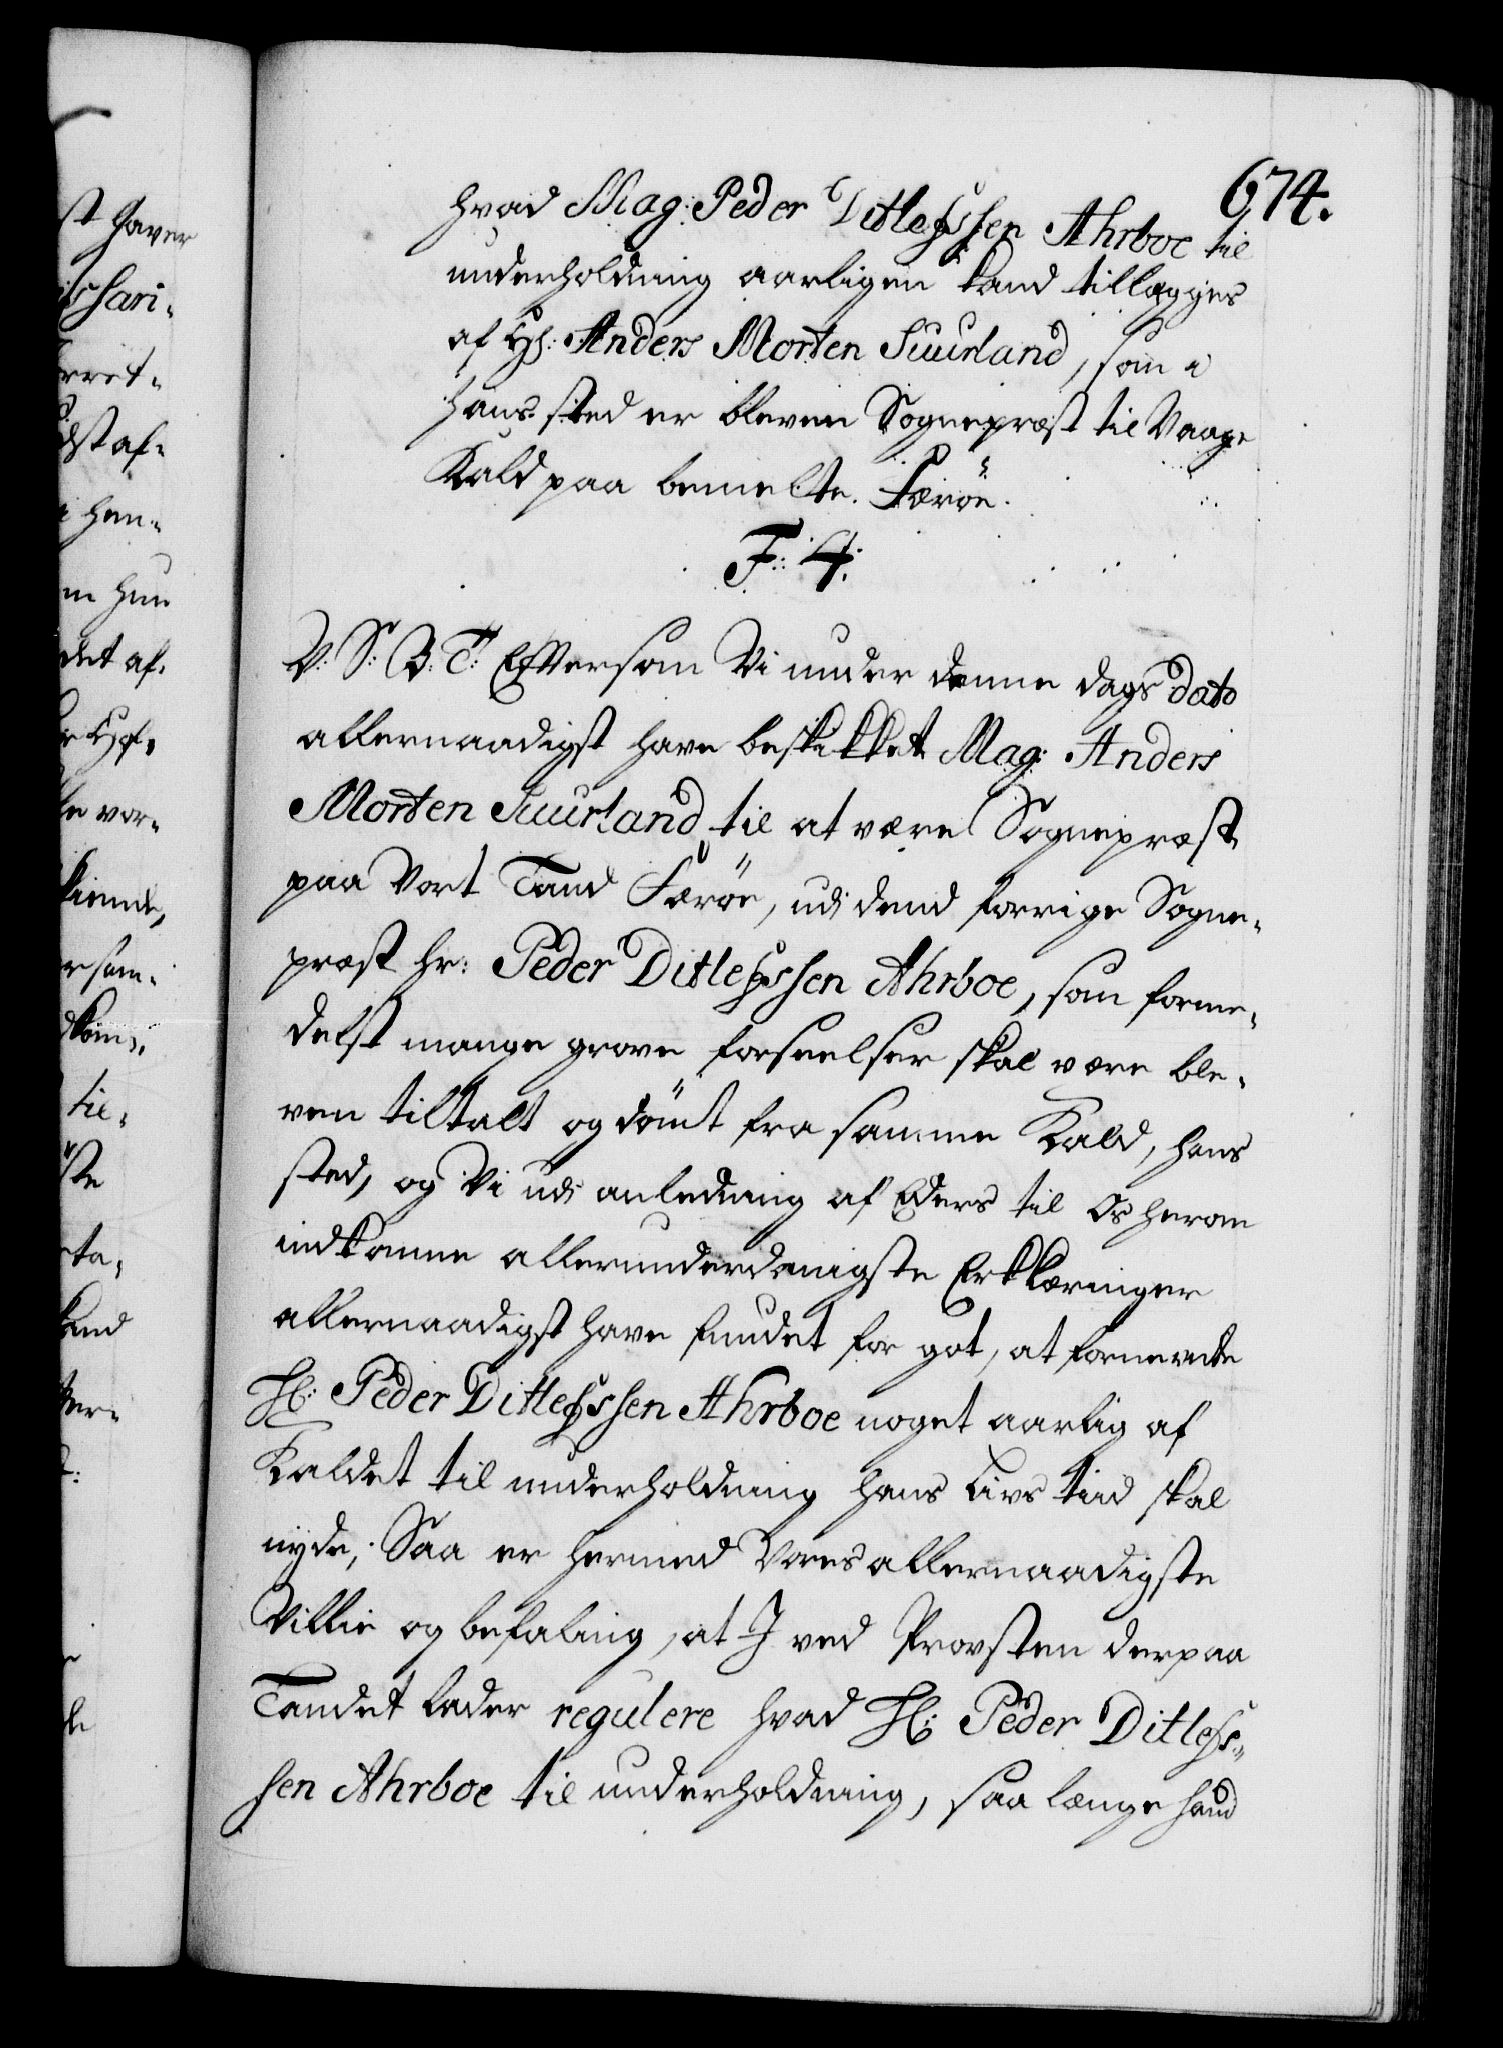 674.
hvad Mag: Peder Ditlefssen Ahrboe til
underholdning aarligen kand tillegges
af Hr: Anders Morten Suurland, som i
hans sted er bleven Sognepræst til Vaage
Kald paa bemelte Færöe.
F: 4:
V: S: B: T: Eftersom Vi under denne dags dato
allernaadigst have beskikket Mag: Anders
Morten Suurland, til at være Sognepræst
paa Vort Land Færöe, udi dend forrige Sogne-
præst Hr: Peder Ditlefssen Ahrboe, som forme-
delst mange grove forseelser skal være ble-
ven tiltalt og dömt fra samme Kald, hans
sted, og Vi udi anledning af Eders til Os herom
indkomne allerunderdanigste Erklæringer
allernaadigst have fundet for got, at fornevnte
Hr: Peder Ditlefssen Ahrboe noget aarlig af
Kaldet til underholdning hans Livs tiid skal
nyde; Saa er hermed Vores allernaadigste
Villie og befaling, at I ved Provsten derpaa
Landet lader regulere hvad Hr: Peder Ditlefs-
sen Ahrboe til underholdning, saa længe hand